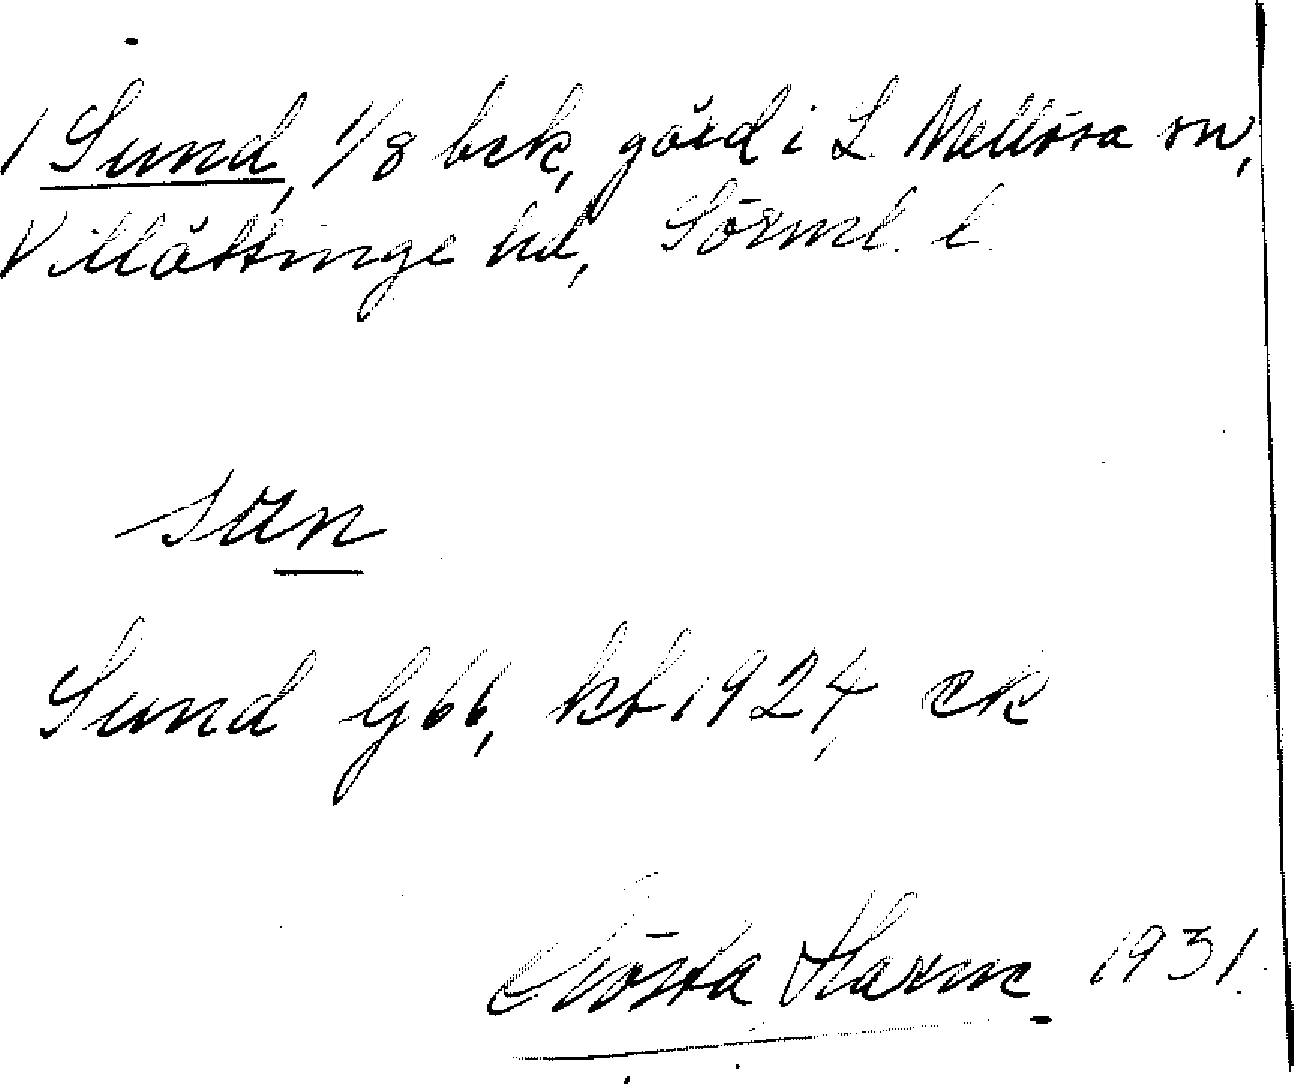 1 Sund, 1/8 bsk, gård i L. Mellösa sn,
Villåttinge hd, Sörml. l.
sun
Sund G66, kbl 1924, ek
Gösta Harm 1931.